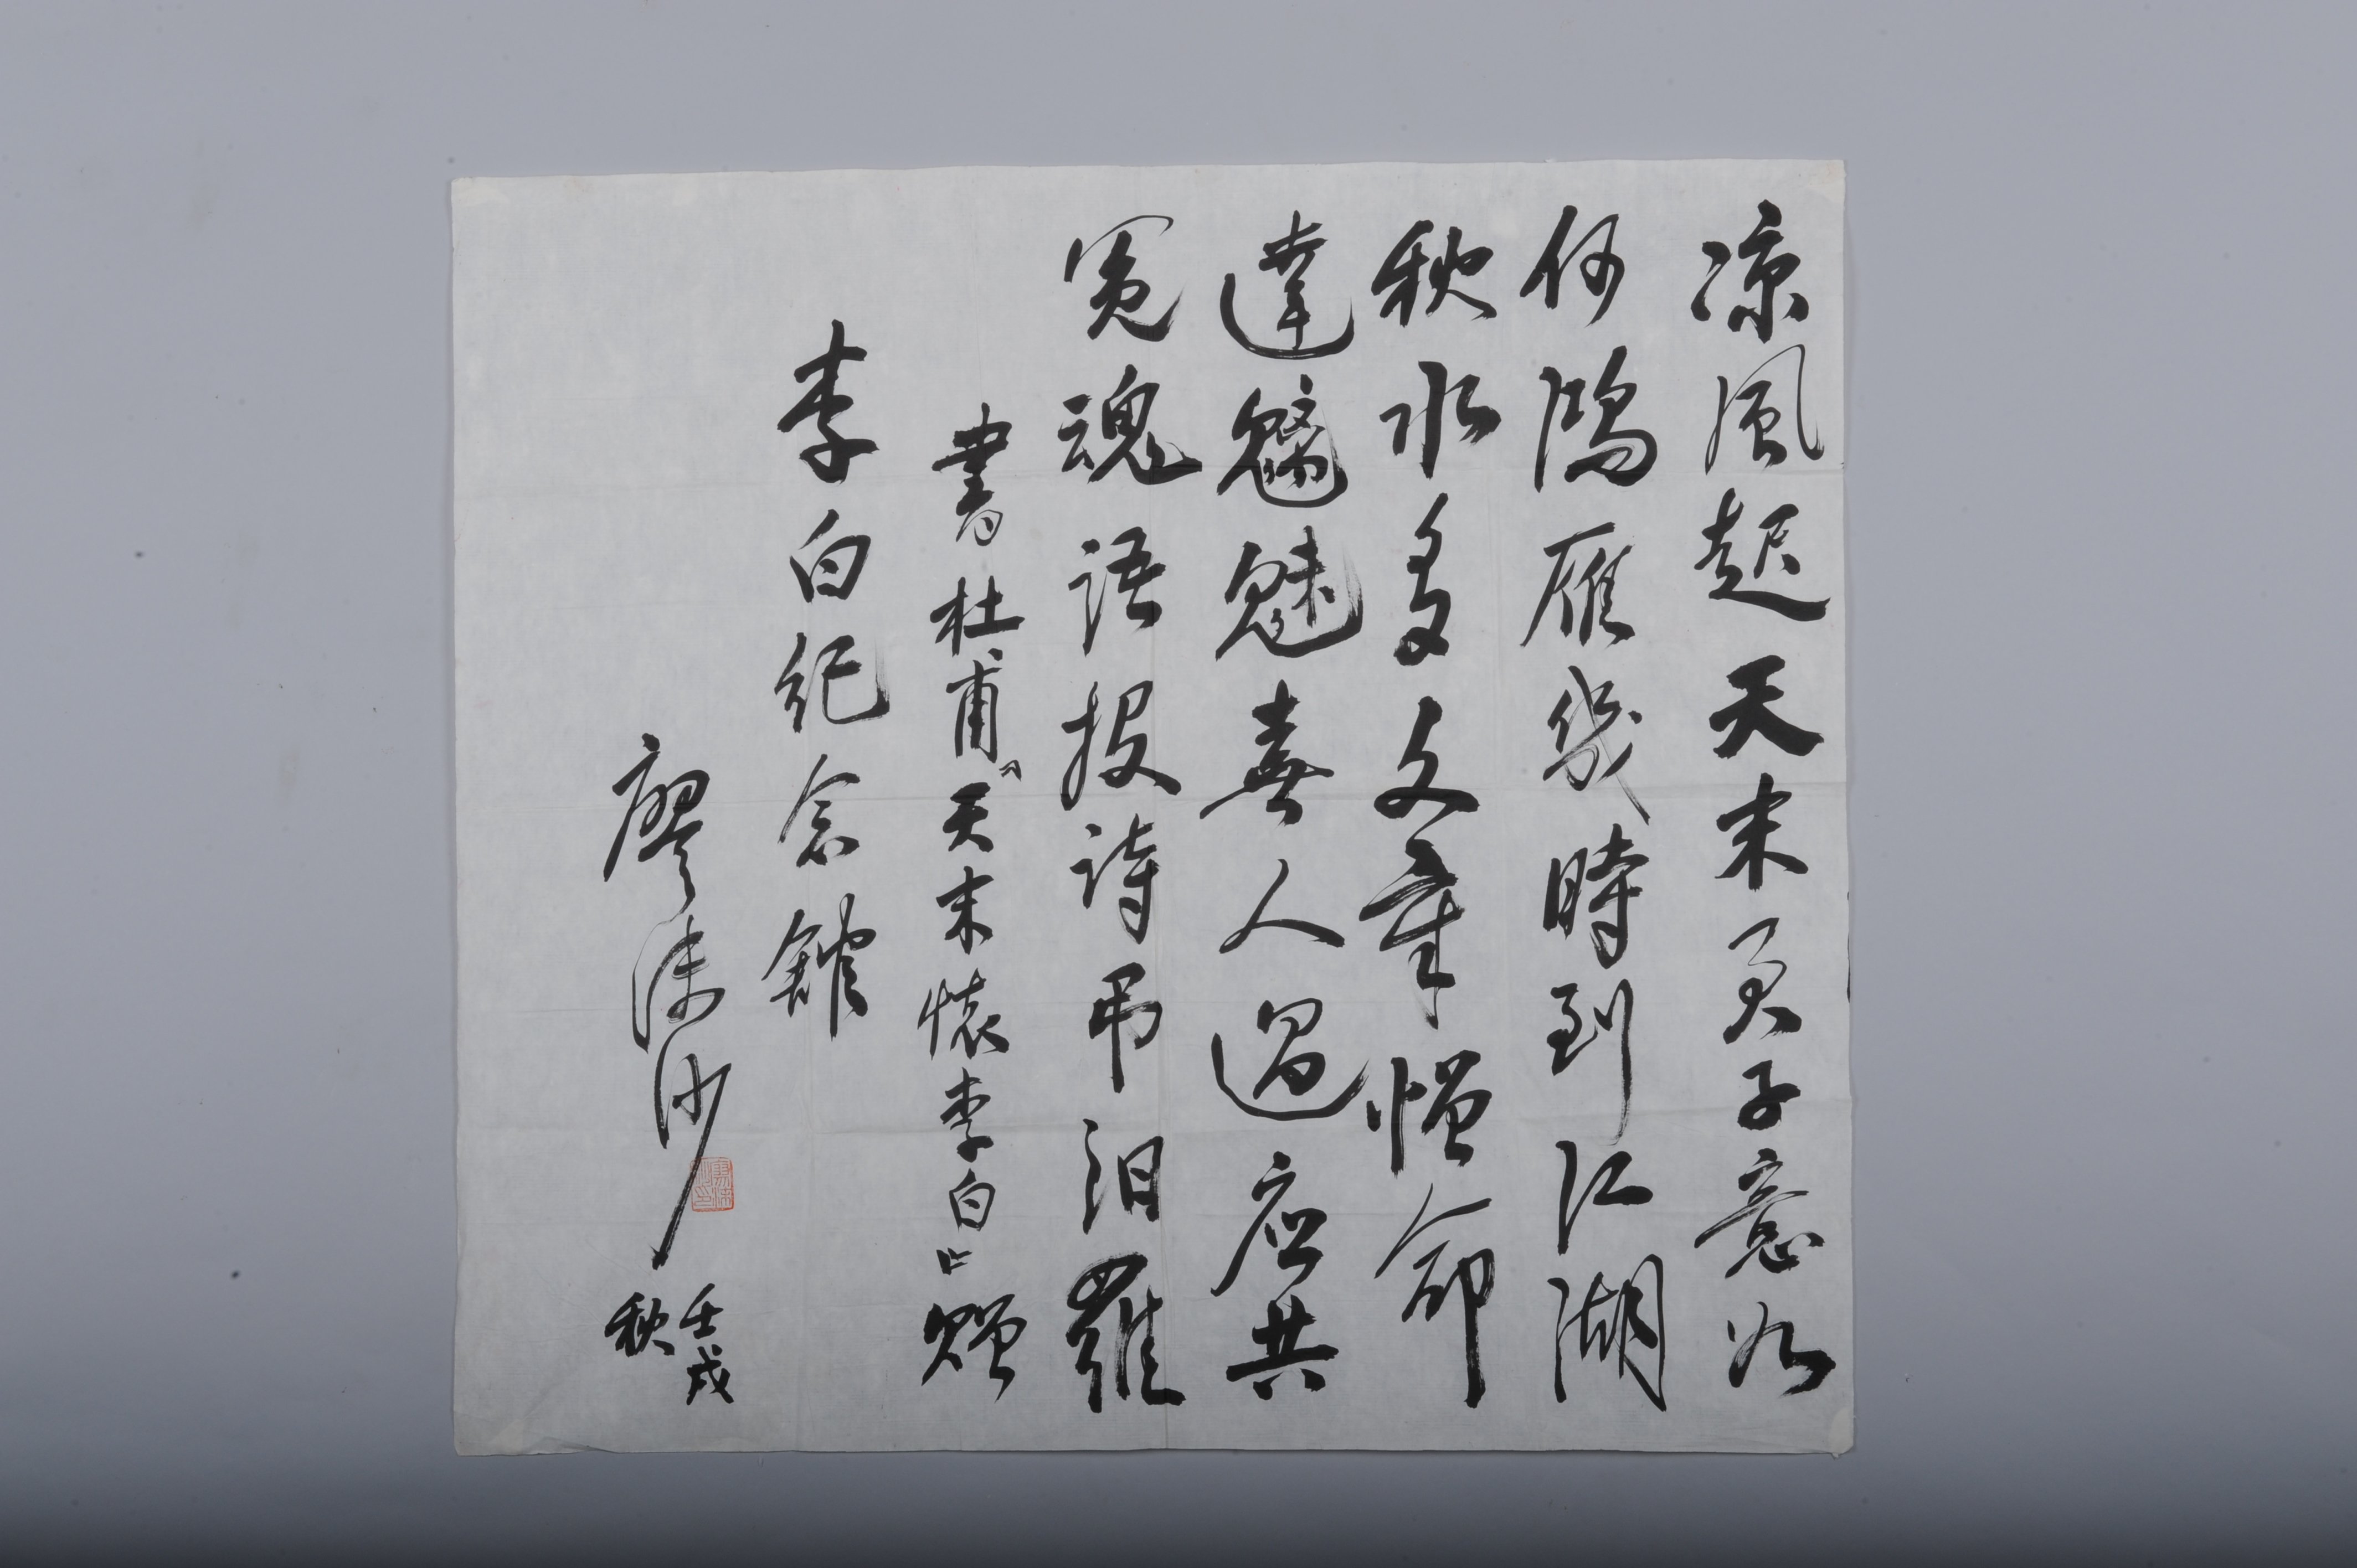 凉風起天末君子意如
何鴻雁幾時到江湖
秋水多文章憎命
達魑魅喜人過应共
冤魂語投詩吊汨羅
書杜甫《天末懷李白》贈
李白紀念館
廖沫沙
壬戌
秋